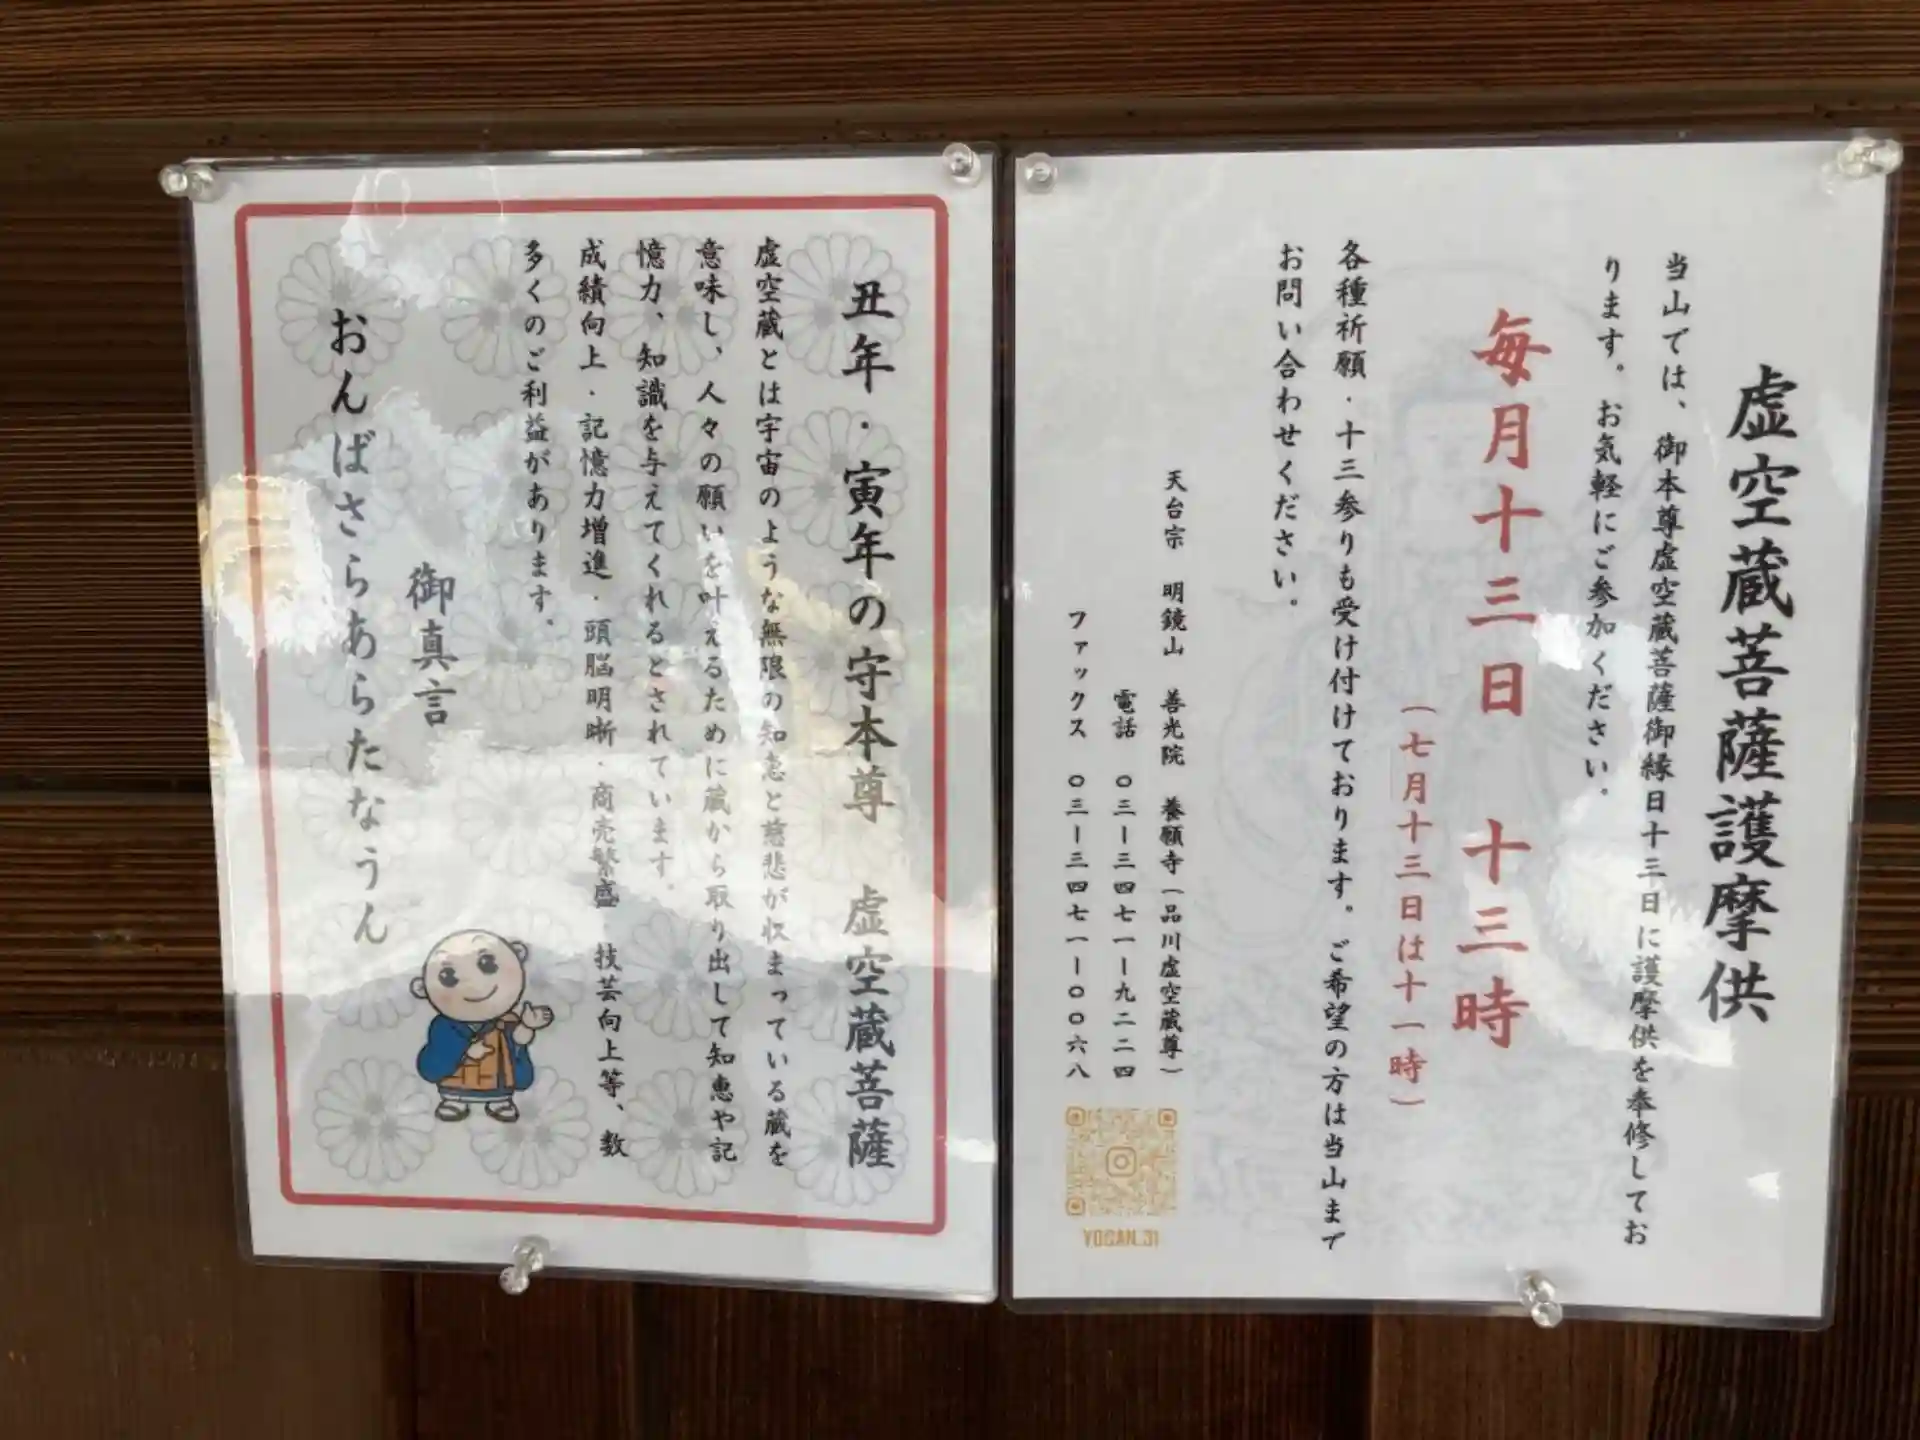 虚空蔵菩薩護摩供
当山では、御本尊虚空蔵菩薩御縁日十三日に護摩供を奉修してお
ります。お気軽にご参加ください。
毎月十三日　十三時
（七月十三日は十一時）
各種祈願・十三参りも受け付けております。ご希望の方は当山まで
お問い合わせください。
天台宗　明鏡山　善光院　養願寺（品川虚空蔵尊）
電話　〇三ー三四七一ー九二二四
ファックス　〇三ー三四七一ー〇〇六八
YOGAN.31
丑年・寅年の守本尊　虚空蔵菩薩
虚空蔵とは宇宙のような無限の知恵と慈悲が収まっている蔵を
意味し、人々の願いを叶えるために蔵から取り出して知恵や記
憶力、知識を与えてくれるとされています。
成績向上・記憶力増進・頭脳明晰・商売繁盛・技芸向上等、数
多くのご利益があります。
御真言
おんばさらあらたなうん